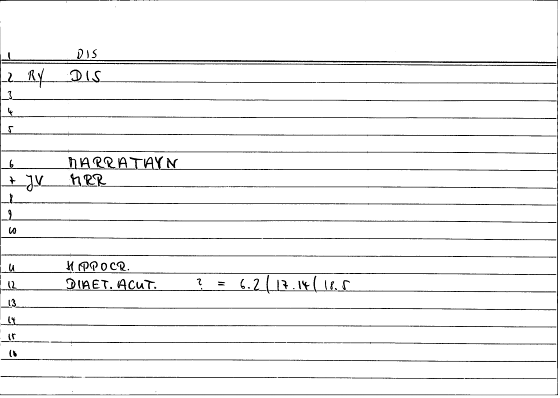 1 DIS
2 RY DIS
3
4
5
6 MARRATAYN
7 JV MRR
8
9
10
11 HIPPOCR.
12 DIAET. ACUT. ? = 6.2 ( 17.14 ( 18.5
13
14
15
16